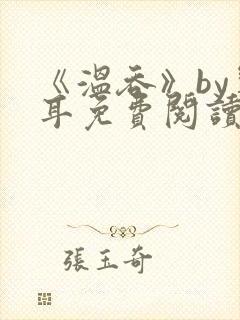 《溫吞》by
耳免費閱讀
張玉奇